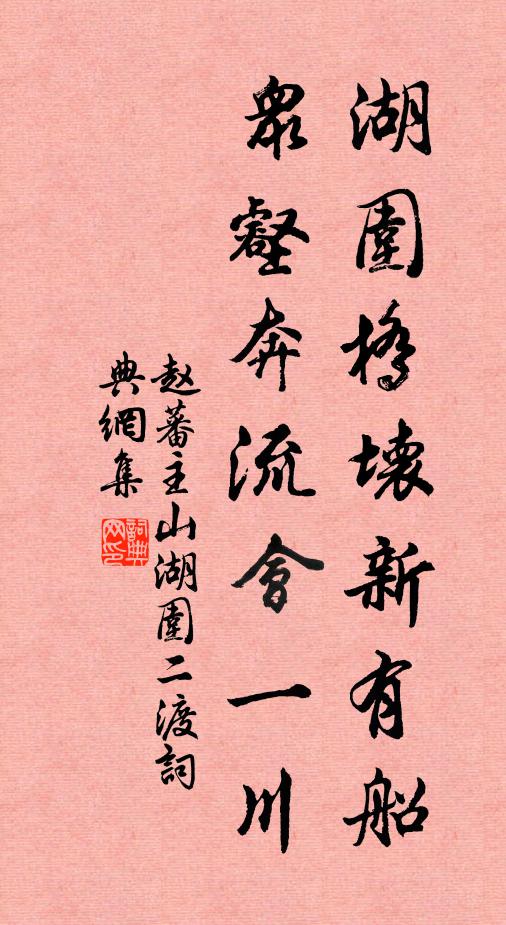 湖圍橋壞新有船
衆壑奔流會一川
赵蕃主山湖圍二渡詞
典網集
詞典網印